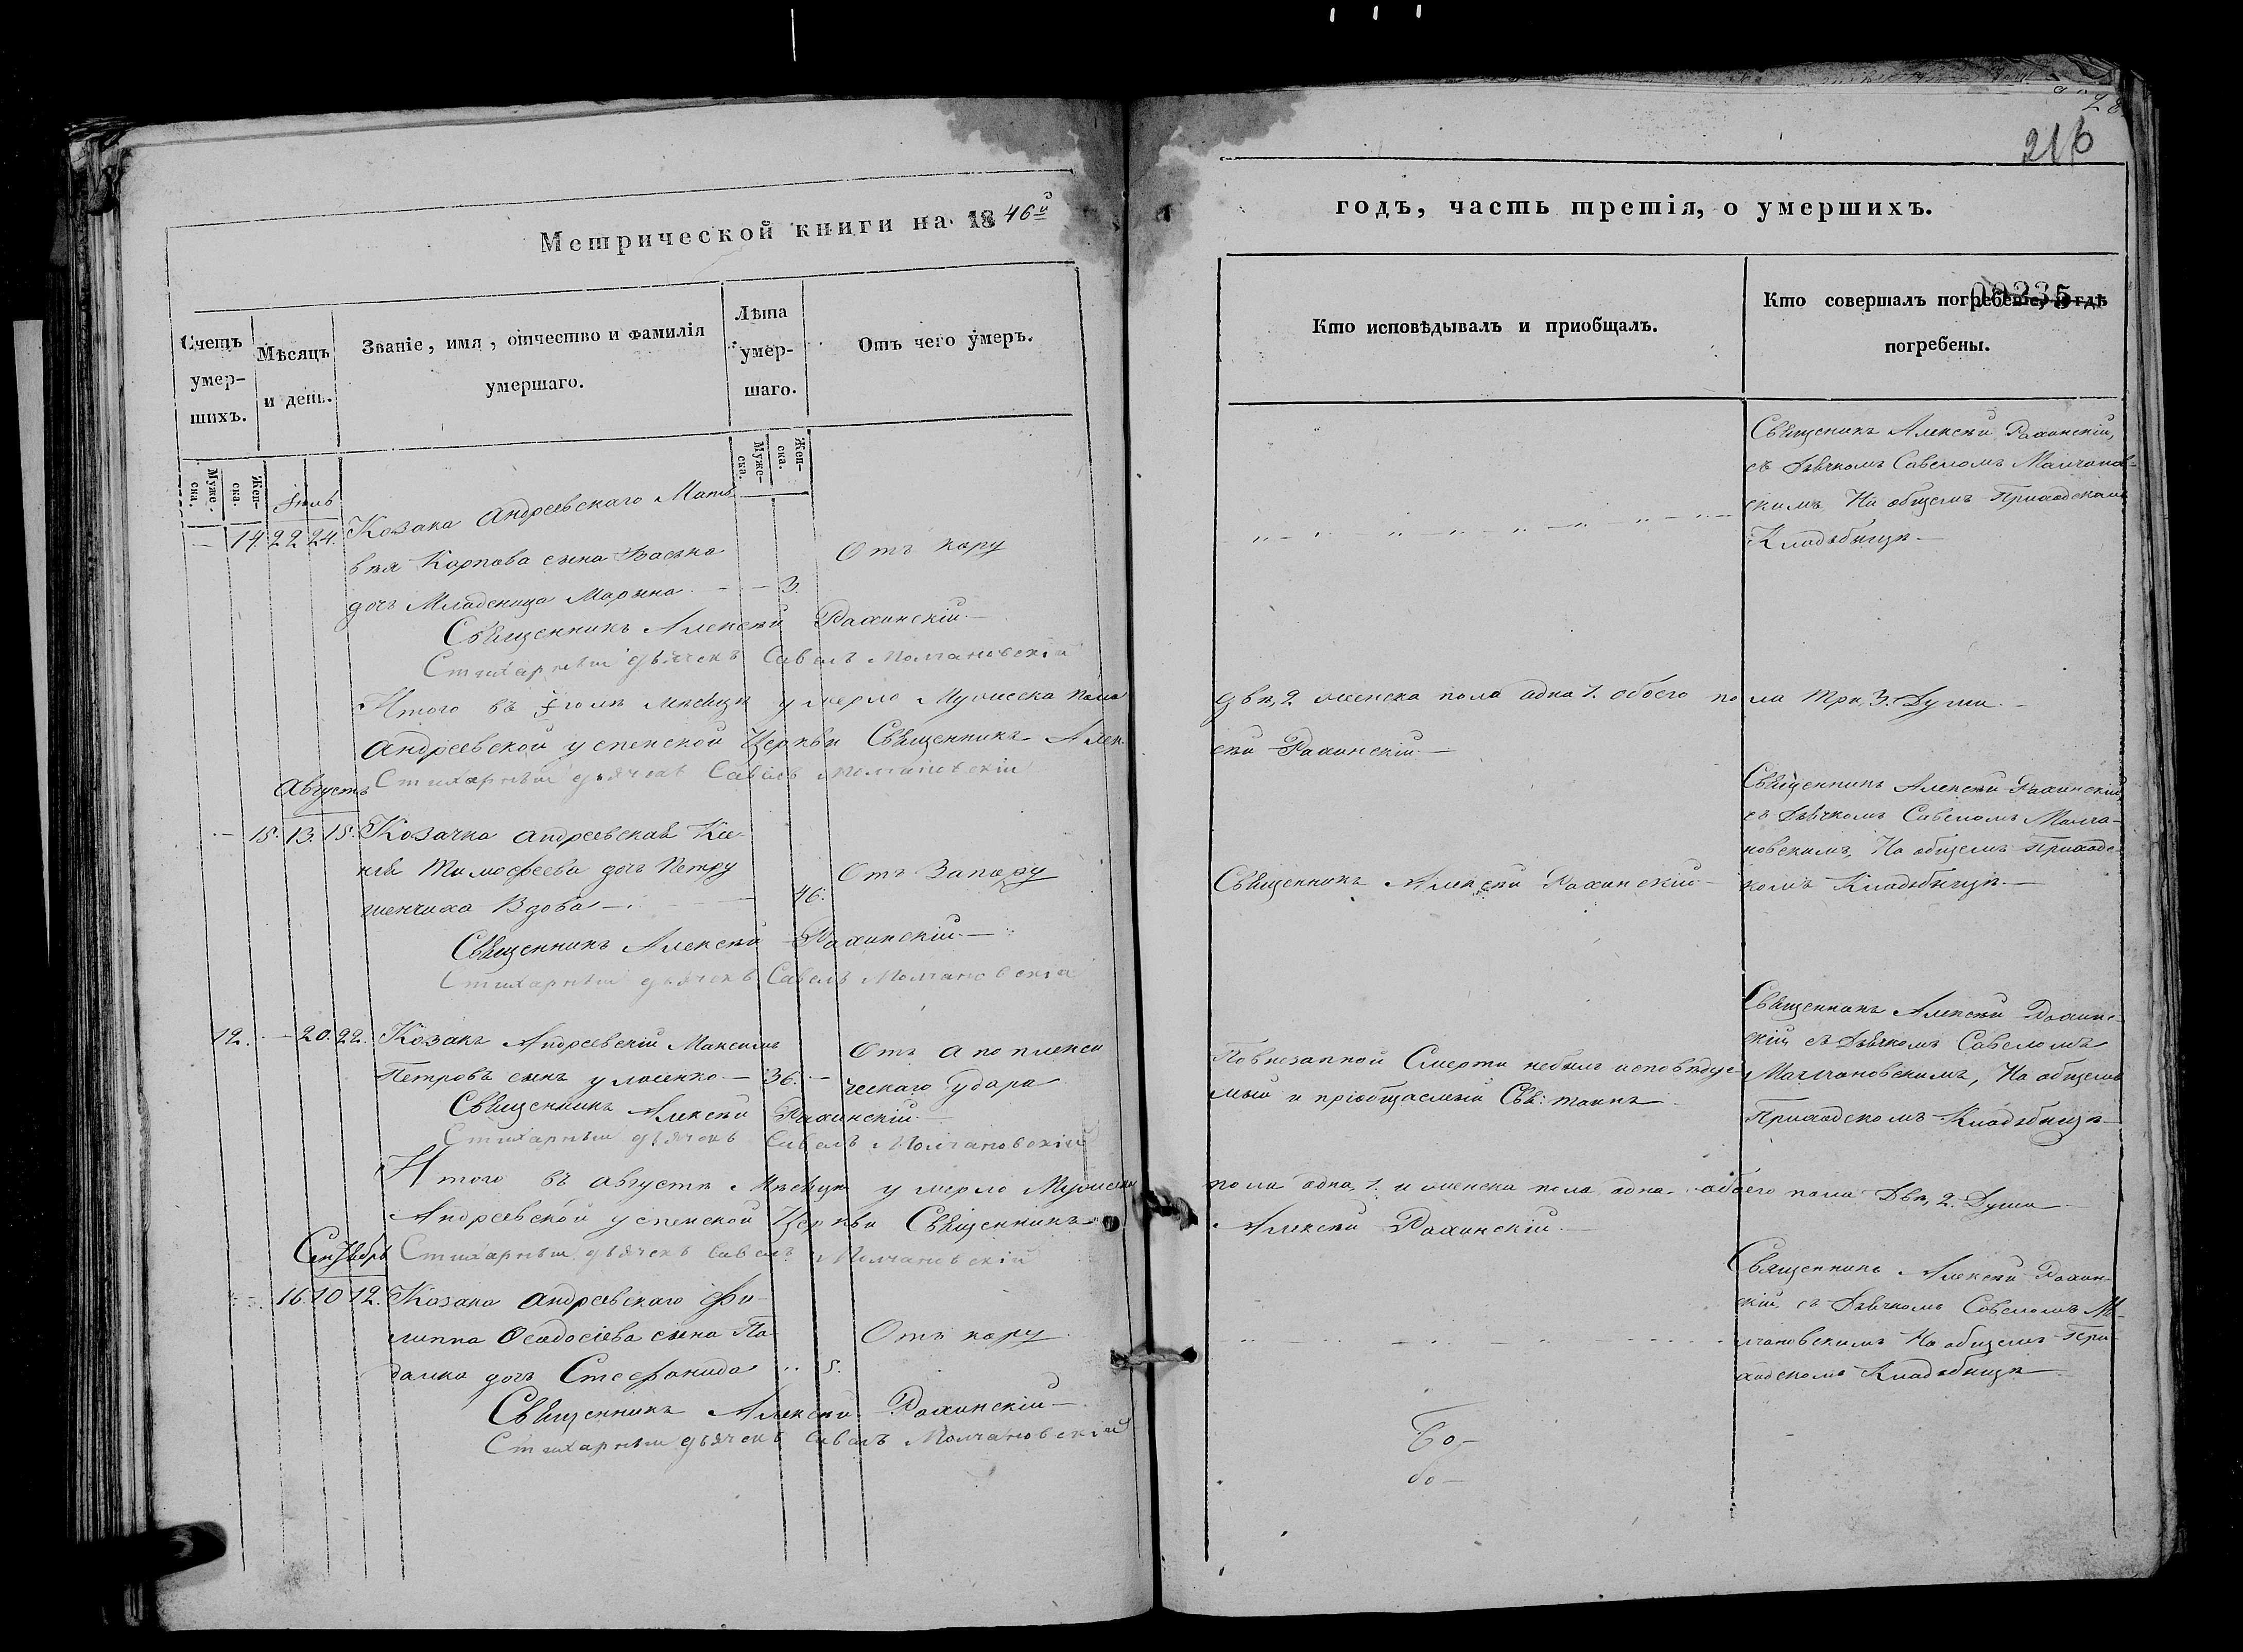 216
Метрической книги на 1846й
годъ, часть третія, о умершихъ.
Счетъ умер-шихъ.
Мѣсяцъ и день.
Званіе, имя, отчество и фамилія умершаго.
Лѣта умер-шаго.
Отъ чего умеръ.
Кто исповѣдывалъ и приобщалъ.
Кто совершалъ погребеніе, и гдѣ погребены.
00235
Муже-ска.
Жен-ска.
Муже-ска.
Жен-ска.
Іюль
14. 22 24. Козака Андреевскаго Мать
вѣя Карпова сына Васька
дочь Младеница Марына 3.
Отъ кору
Священникъ Алексѣй Рахинскій,
съ Дьячкомъ Савеломъ Малчанов-
скимъ, На общемъ Приходскомъ
Кладбищѣ
Священникъ Алексѣй Рахинскій
Стихарный дьячекъ Савелъ Молчановскій
Итого въ Іюлѣ мѣсяцѣ умерло Мужеска пола
двѣ, 2 женска пола одна 1. обоего пола три, 3. Души
Андреевской успенской Церкви Священникъ Алек-
сѣй Рахинскій
Стихарный дьячекъ Савелъ Молчановскій
Августъ
15. 13. 15. Козачка Андреевская Ксе-
нія Тимофеева дочь Петру
шенчиха Вдова 46.
Отъ Запору
Священникъ Алексѣй Рахинскій
Священникъ Алексѣй Рахинскій,
съ Дьячкомъ Савеломъ Малча-
новскимъ, На общемъ Приходс-
комъ Кладбищѣ
Священникъ Алексѣй Рахинскій
Стихарный дьячекъ Савелъ Молчановскій
12. 20. 22. Козакъ Андреевскій Максимъ
Петровъ сынъ 36.
Отъ апоплекси
ческаго Удара
Повнезапной Смерти небылъ исповѣдуе
мый и пріобщаемый Свв: таинъ
Священникъ Алексѣй Рахинс-
скій, съ Дьячкомъ Савеломъ
Малчановскимъ, На общемъ
Приходскомъ Кладбищѣ
Священникъ Алексѣй Рахинскій
Стихарный дьячекъ Савелъ Молчановскій
Итого въ августѣ Мѣсяцѣ умерло Мужеска
пола одна, 1. и женска пола одна. обоего пола Двѣ, 2. Души
Андреевской успенской Церкви Священникъ
Алексѣй Рахинскій
Сентябрь
Стихарный дьячекъ Савелъ Молчановскій
16. 10 12. Козака Андреевскаго Фи-
липпа Феодосіева сына Па-
далка дочь Стефанида 5.
Отъ кору
Священникъ Алексѣй Рахин-
скій, съ Дьячкомъ Савеломъ Ма-
лчановскимъ На общемъ При-
ходскомъ Кладбищѣ
Священникъ Алексѣй Рахинскій
Стихарный дьячекъ Савелъ Молчановскій